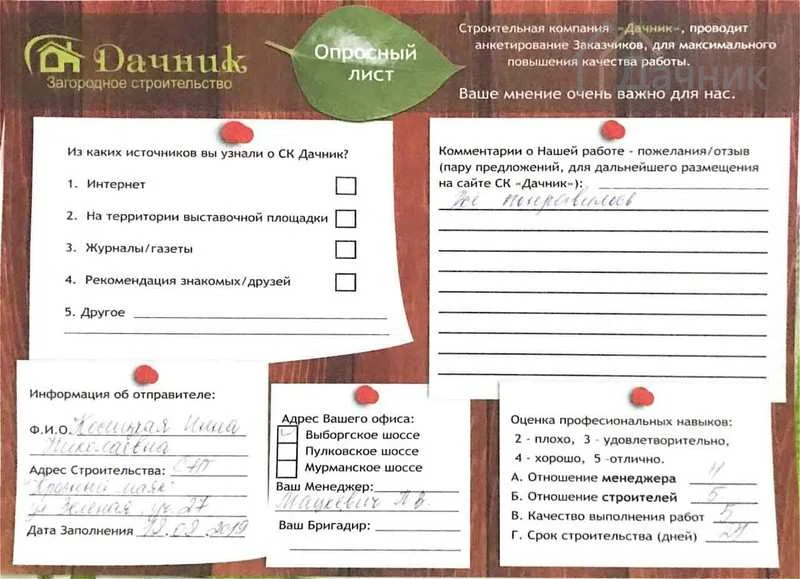 Дачник
Загородное строительство
Опросный
лист
Строительная компания «Дачник», проводит
анкетирование Заказчиков, для максимального
повышения качества работы.
Дачник
Ваше мнение очень важно для нас.
Из каких источников вы узнали о СК Дачник?
1. Интернет
2. На территории выставочной площадки
3. Журналы/газеты
4. Рекомендация знакомых/друзей
5. Другое
Комментарии о Нашей работе - пожелания/отзыв
(пару предложений, для дальнейшего размещения
на сайте СК «Дачник»):
понравилось
Информация об отправителе:
Ф.И.О. Косицкая Инна
Николаевна
Адрес Строительства: СНТ
маяк"
Зеленая, уч. 27
Дата Заполнения 12.09.2019
Адрес Вашего офиса:
Выборгское шоссе
Пулковское шоссе
Мурманское шоссе
Ваш Менеджер:
Мацкевич
Ваш Бригадир:
Оценка профессиональных навыков:
2 - плохо, 3 - удовлетворительно,
4 - хорошо, 5 -отлично.
А. Отношение менеджера 4
Б. Отношение строителей 5
В. Качество выполнения работ 5
Г. Срок строительства (дней) 21